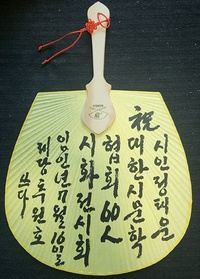 시인정태운
祝 대한시문학
협회 60人
시화전시회
임인년 7월 16일
쓰다